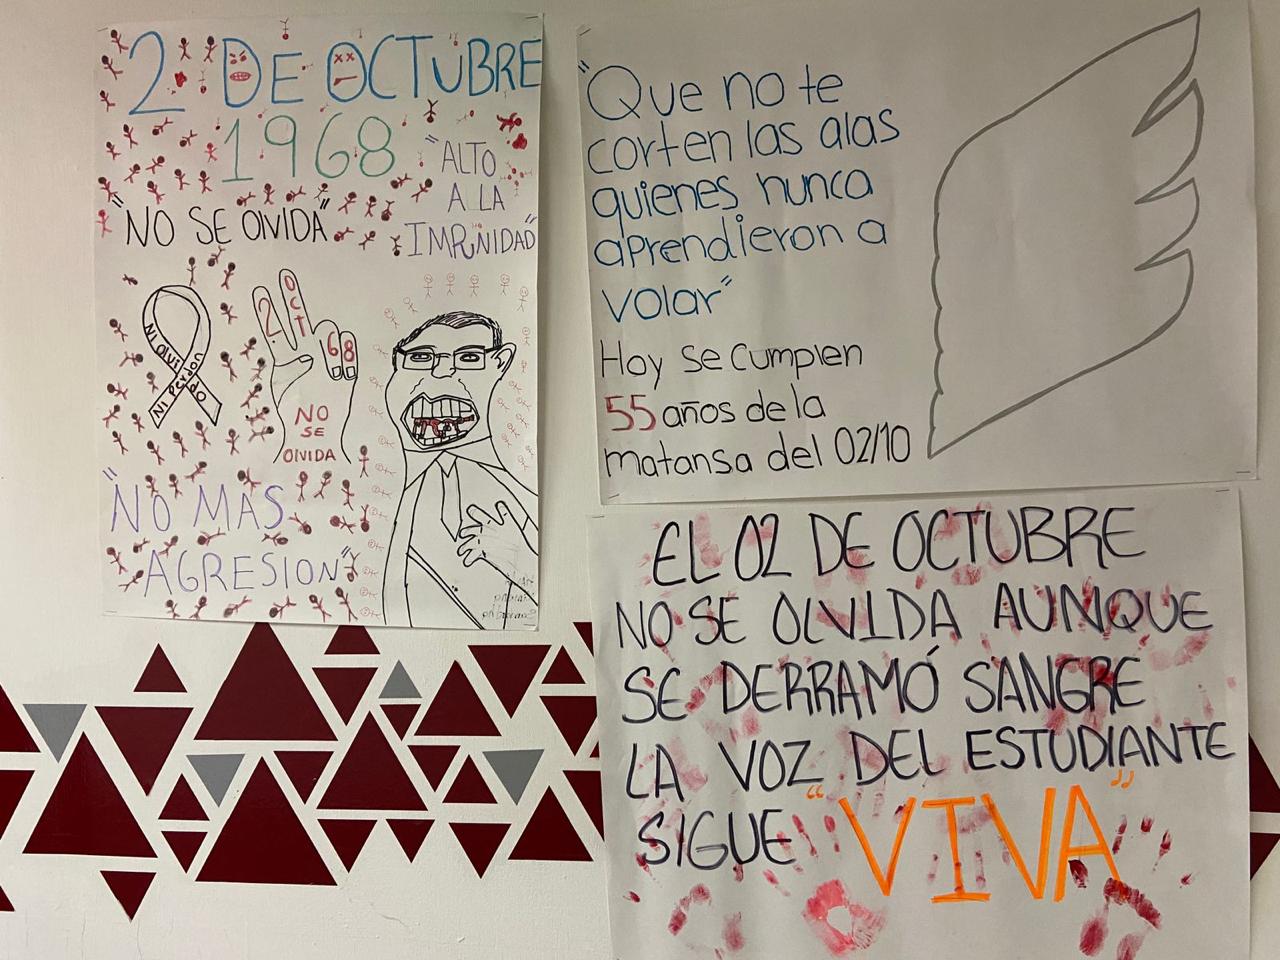 2 DE OCTUBRE
1968
"ALTO
A LA
IMPUNIDAD"
"NO SE OLVIDA"
Ni olvido
Ni perdon
2 OCT 68
NO
SE
OLVIDA
"NO MAS
AGRESION"
"Que no te
corten las alas
quienes nunca
aprendieron a
volar"
Hoy se cumplen
55 años de la
matansa del 02/10
EL 02 DE OCTUBRE
NO SE OLVIDA AUNQUE
SE DERRAMÓ SANGRE
LA VOZ DEL ESTUDIANTE
SIGUE "VIVA"